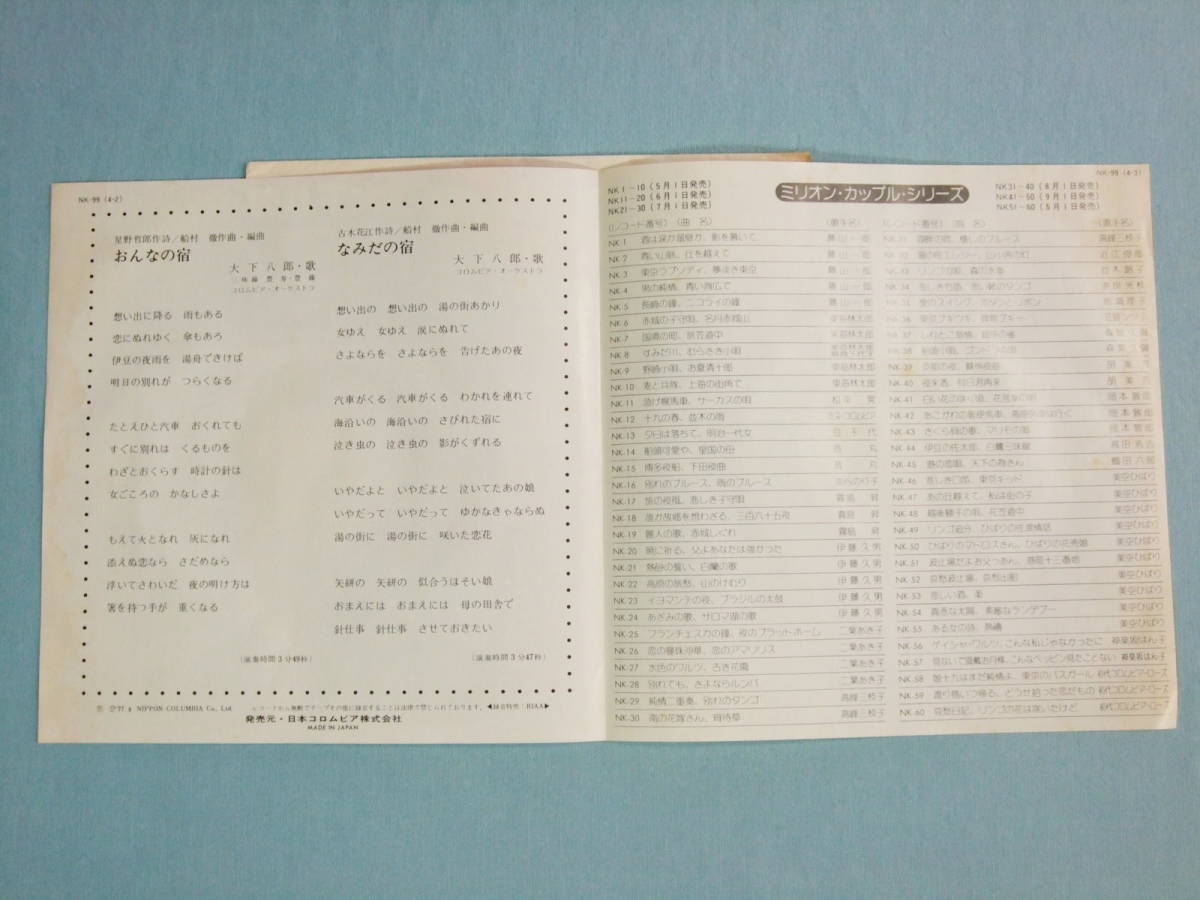 NK-99 (4-2)
星野哲郎作詩/船村 徹作曲・編曲
おんなの宿
大下八郎・歌
コロムビア・オーケストラ
想い出に降る 雨もある
恋にぬれゆく 傘もあろ
伊豆の夜雨を 湯舟できけば
明日の別れが つらくなる
たとえひと汽車 おくれても
すぐに別れは くるものを
わざとおくらす 時計の針は
女ごころの かなしさよ
もえて火となれ 灰になれ
添えぬ恋なら さだめなら
浮いてさわいだ 夜の明け方は
箸を持つ手が 重くなる
(演奏時間3分49秒)
古木花江作詩/船村 徹作曲・編曲
なみだの宿
大下八郎・歌
コロムビア・オーケストラ
想い出の 想い出の 湯の街あかり
女ゆえ 女ゆえ 涙にぬれて
さよならを さよならを 告げたあの夜
汽車がくる 汽車がくる わかれを連れて
海沿いの 海沿いの さびれた宿に
泣き虫の 泣き虫の 影がくずれる
いやだよと いやだよと 泣いてたあの娘
いやだって いやだって ゆかなきゃならぬ
湯の街に 湯の街に 咲いた恋花
矢絣の 矢絣の 似合うほそい娘
おまえには おまえには 母の田舎で
針仕事 針仕事 させておきたい
(演奏時間3分47秒)
NIPPON COLUMBIA Co., Ltd.
発売元・日本コロムビア株式会社
MADE IN JAPAN
NK-99 (4-3)
NK1-10(5月1日発売)
NK11-20(6月1日発売)
NK21-30(7月1日発売)
ミリオン・カップル・シリーズ
NK31-40(8月1日発売)
NK41-50(9月1日発売)
(レコード番号) (曲 名) (歌手名)
NK-1 酒は涙か溜息か、影を慕いて 藤山一郎
NK-2 青い山脈、丘を越えて 藤山一郎
NK-3 東京ラプソディ、夢淡き東京 藤山一郎
NK-4 男の純情、青い背広で 藤山一郎
NK-5 長崎の鐘、ニコライの鐘 藤山一郎
NK-6 赤城の子守唄、名月赤城山 東海林太郎
NK-7 国境の町、旅笠道中 東海林太郎
NK-8 すみだ川、むらさき小唄
NK-9 野崎小唄、お夏清十郎 東海林太郎
NK-10 麦と兵隊、上海の街角で 東海林太郎
NK-11 急げ幌馬車、サーカスの唄 松平晃
NK-12 十九の春、並木の雨 ミス・コロムビア
NK-13 夕日は落ちて、明治一代女
NK-14 船頭可愛や、皇国の母 音丸
NK-15 博多夜船、下田夜曲 音丸
NK-16 別れのブルース、雨のブルース 淡谷のり子
NK-17 旅の夜風、悲しき子守唄 霧島昇
NK-18 誰か故郷を想わざる、三百六十五夜 霧島昇
NK-19 麗人の歌、赤城しぐれ 霧島昇
NK-20 暁に祈る、父よあなたは強かった 伊藤久男
NK-21 熱砂の誓い、白蘭の歌 伊藤久男
NK-22 高原の旅愁、山のけむり 伊藤久男
NK-23 イヨマンテの夜、ブラジルの太鼓 伊藤久男
NK-24 あざみの歌、サロマ湖の歌 伊藤久男
NK-25 フランチェスカの鐘、夜のプラットホーム 二葉あき子
NK-26 恋の曼珠沙華、恋のアマリリス 二葉あき子
NK-27 水色のワルツ、古き花園 二葉あき子
NK-28 別れても、さよならルンバ 二葉あき子
NK-29 純情二重奏、別れのタンゴ 高峰三枝子
NK-30 南の花嫁さん、宵待草 高峰三枝子
(レコード番号) (曲 名) (歌手名)
湖畔の宿、懐しのブルース 高峰三枝子
近江俊郎
リンゴの唄、森の水車 並木路子
悲しき竹笛、悲しき
奈良光枝
池真理子
東京ブギウギ
笠置シヅ子
NK-39 胡美芳
NK-40 夜来香、何日君再来 胡美芳
NK-41 白い花の咲く頃 岡本敦郎
NK-42 あこがれの郵便馬車、高原列車は行く 岡本敦郎
NK-43 さくら貝の歌、マリモの歌 岡本敦郎
NK-44 伊豆の佐太郎、白鷺三味線 高田浩吉
NK-45 鶴田六郎
NK-46 悲しき口笛、東京キッド 美空ひばり
NK-47 あの丘越えて、私は街の子 美空ひばり
NK-48 越後獅子の唄、花笠道中 美空ひばり
NK-49 リンゴ追分、ひばりの佐渡情話 美空ひばり
NK-50 ひばりのマドロスさん、ひばりの花売娘 美空ひばり
NK-51 波止場だよお父つぁん、港町十三番地 美空ひばり
NK-52 哀愁波止場、哀愁出船 美空ひばり
NK-53 悲しい酒、柔 美空ひばり
NK-54 真赤な太陽、素敵なランデブー 美空ひばり
NK-55 ある女の詩、熱祷 美空ひばり
NK-56 ゲイシャ・ワルツ、こんな私じゃなかったに 神楽坂はん子
NK-57 見ないで頂戴お月様、こんなベッピン見たことない 神楽坂はん子
NK-58 娘十九はまだ純情よ、東京のバスガール 初代コロムビア・ローズ
NK-59 渡り鳥いつ帰る、どうせ拾った恋だもの 初代コロムビア・ローズ
NK-60 哀愁日記、リンゴの花は咲いたけど 初代コロムビア・ローズ